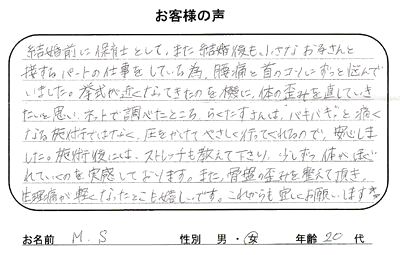 お客様の声
結婚前に保育士として、また結婚後も、小さなお子さんと
接するパートの仕事をしている為、腰痛と首のコリにずっと悩んで
いました。挙式が近くなってきたのを機に、体の歪みを直していき
たいと思い、ネットで調べたところ、らくだすさんは、バキバキっと痛く
なる施術ではなく、圧をかけてやさしく行ってくれるので、安心しま
した。施術後には、ストレッチも教えて下さり、少しずつ体がほぐ
れていくのを実感しております。また、骨盤の歪みを整えて頂き、
生理痛が軽くなったことも嬉しいです。これからも宜しくお願いします
お名前 M.S 性別 男・女 年齢 20 代